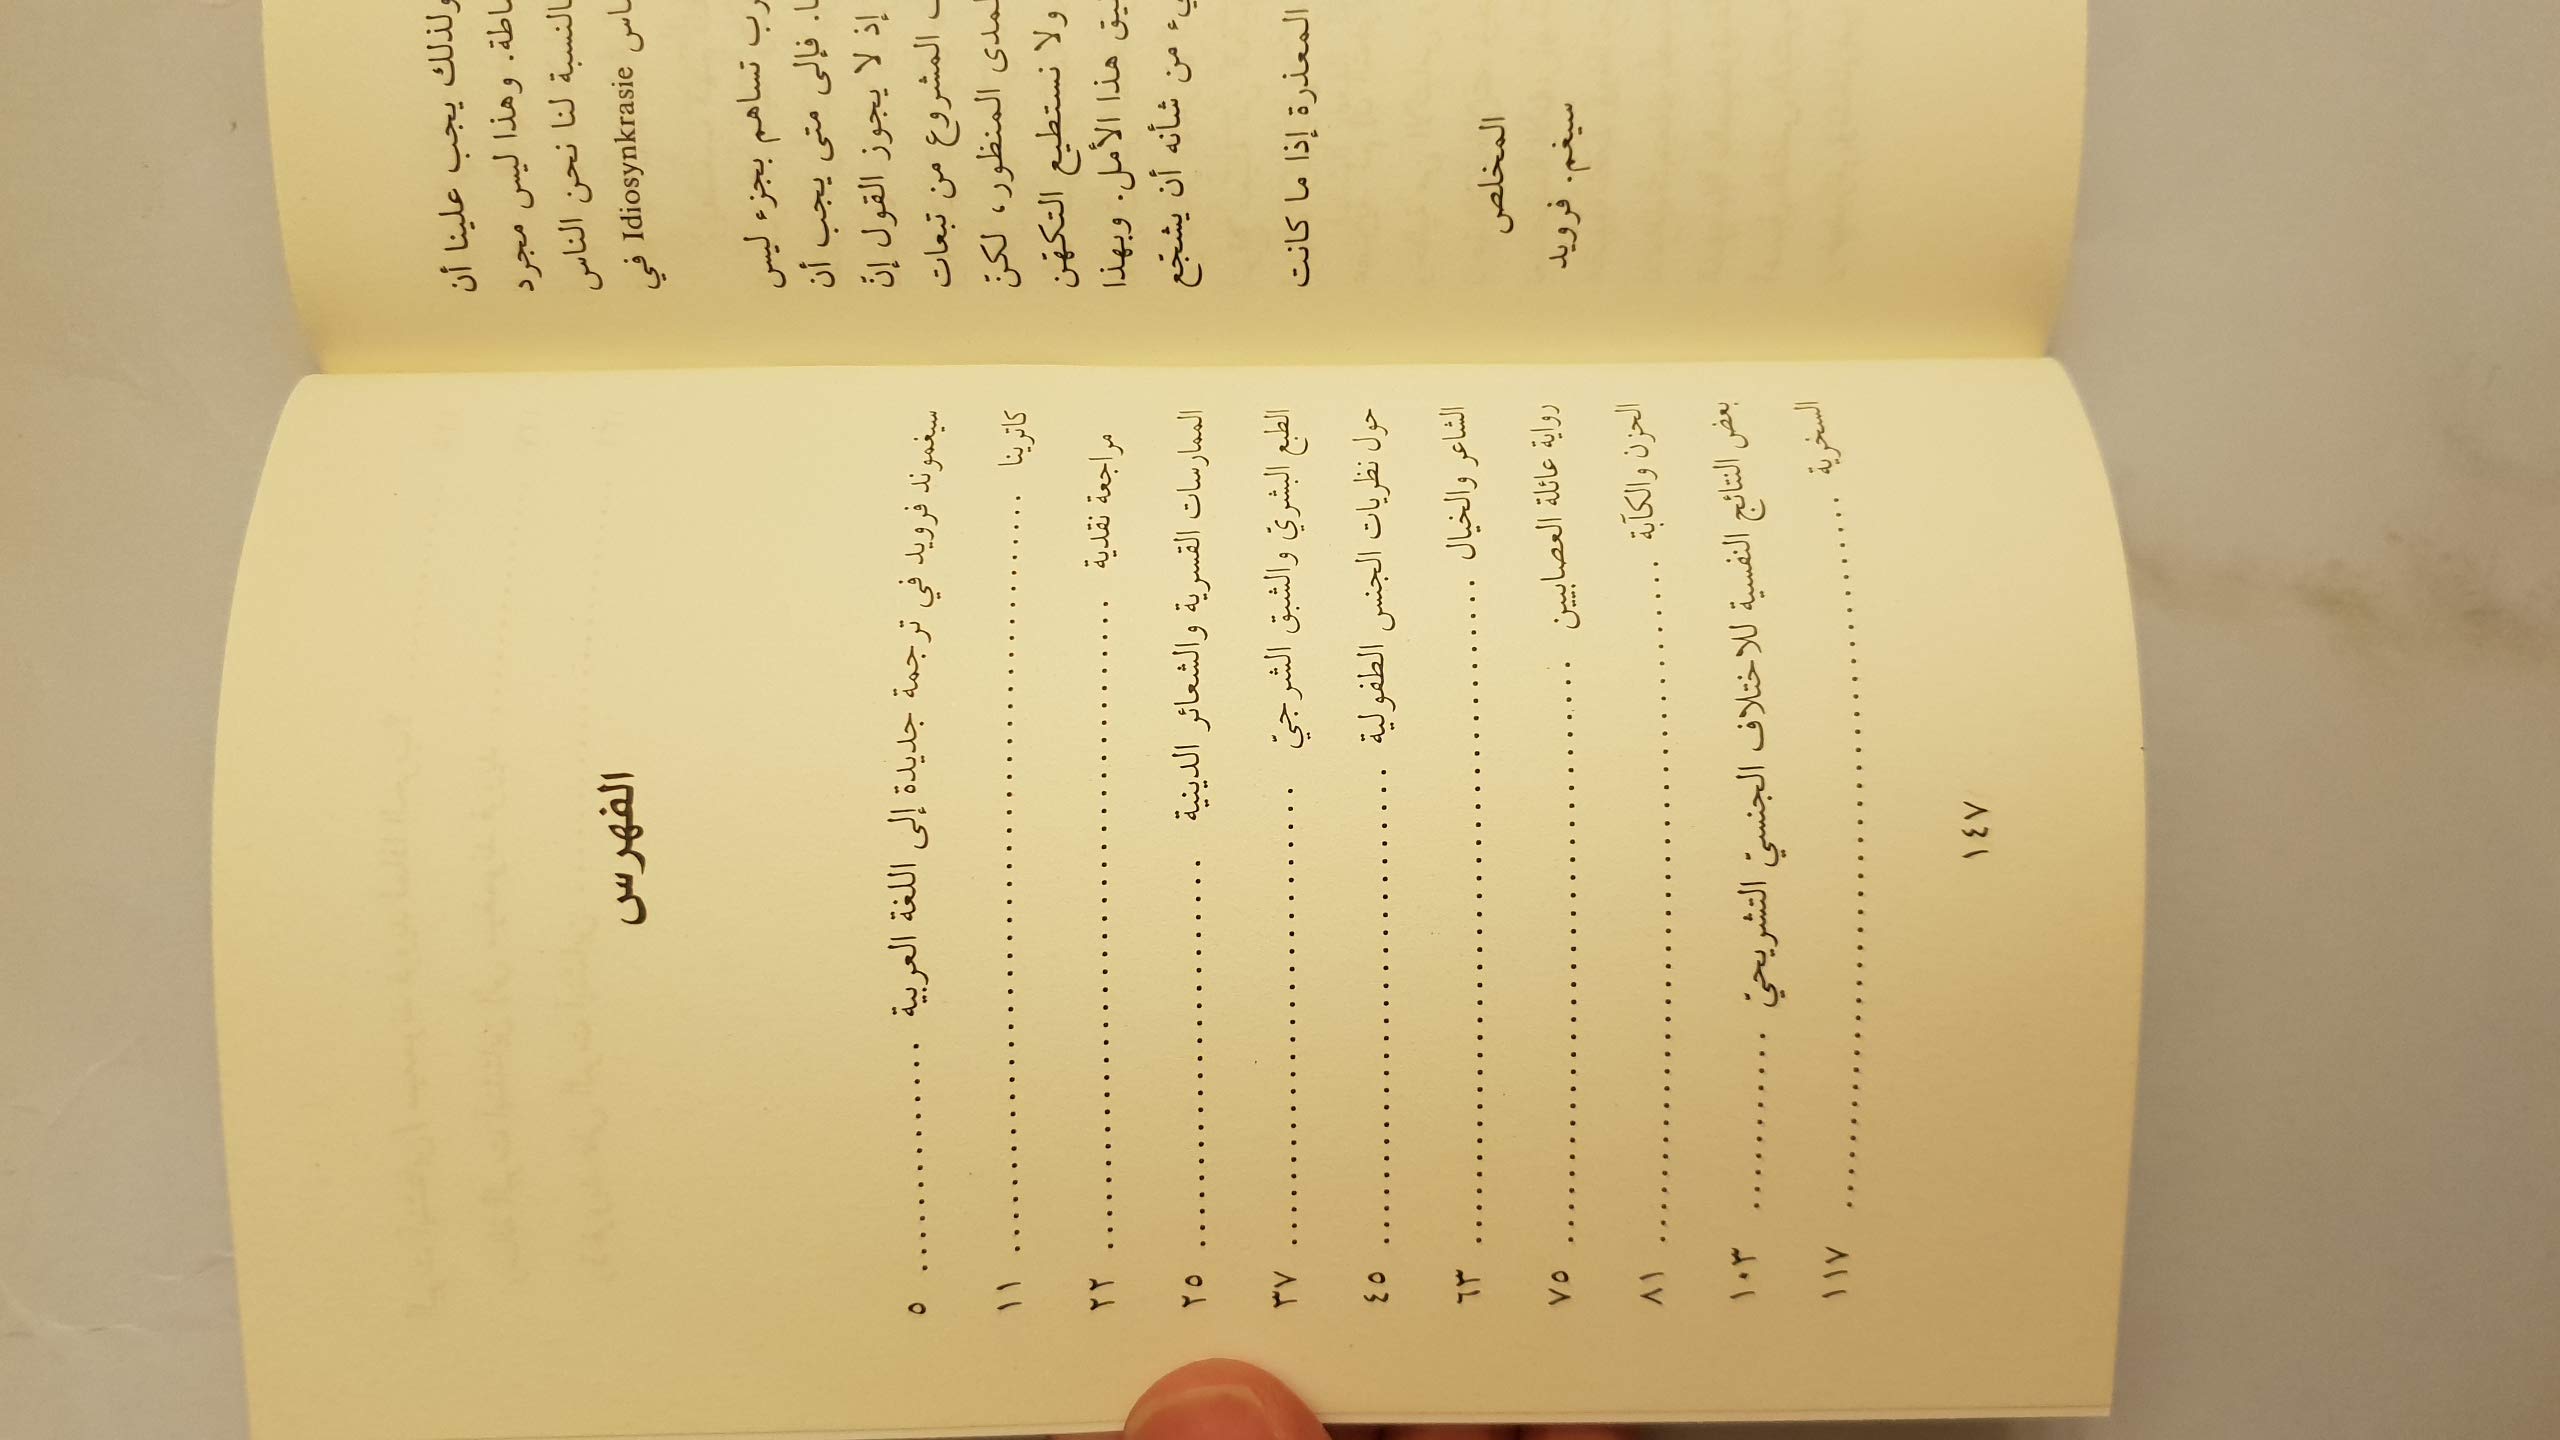 ولذلك يجب علينا أن
وهذا ليس مجرد
بالنسبة لنا نحن الناس
Idiosynkrasie في
تساهم بجزء ليس
فإلى متى يجب أن
إذ لا يجوز القول إنّ
المشروع من تبعات
المدى المنظور، لكنّ
ولا نستطيع التكهّن
هذا الأمل. وبهذا
من شأنه أن يشجّع
المعذرة إذا ما كانت
المخلص
سيغم. فرويد
الفهرس
سيغموند فرويد في ترجمة جديدة إلى اللغة العربية ............ ٥
كاترينا ............ ١١
مراجعة نقدية ............ ٢٢
الممارسات القسرية والشعائر الدينية ............ ٢٥
الطبع البشريّ والشبق الشرجيّ ............ ٣٧
حول نظريات الجنس الطفولية ............ ٤٥
الشاعر والخيال ............ ٦٣
رواية عائلة العصابيين ............ ٧٥
الحزن والكآبة ............ ٨١
بعض النتائج النفسية للاختلاف الجنسيّ التشريحيّ ............ ١٠٣
السخرية ............ ١١٧
١٤٧